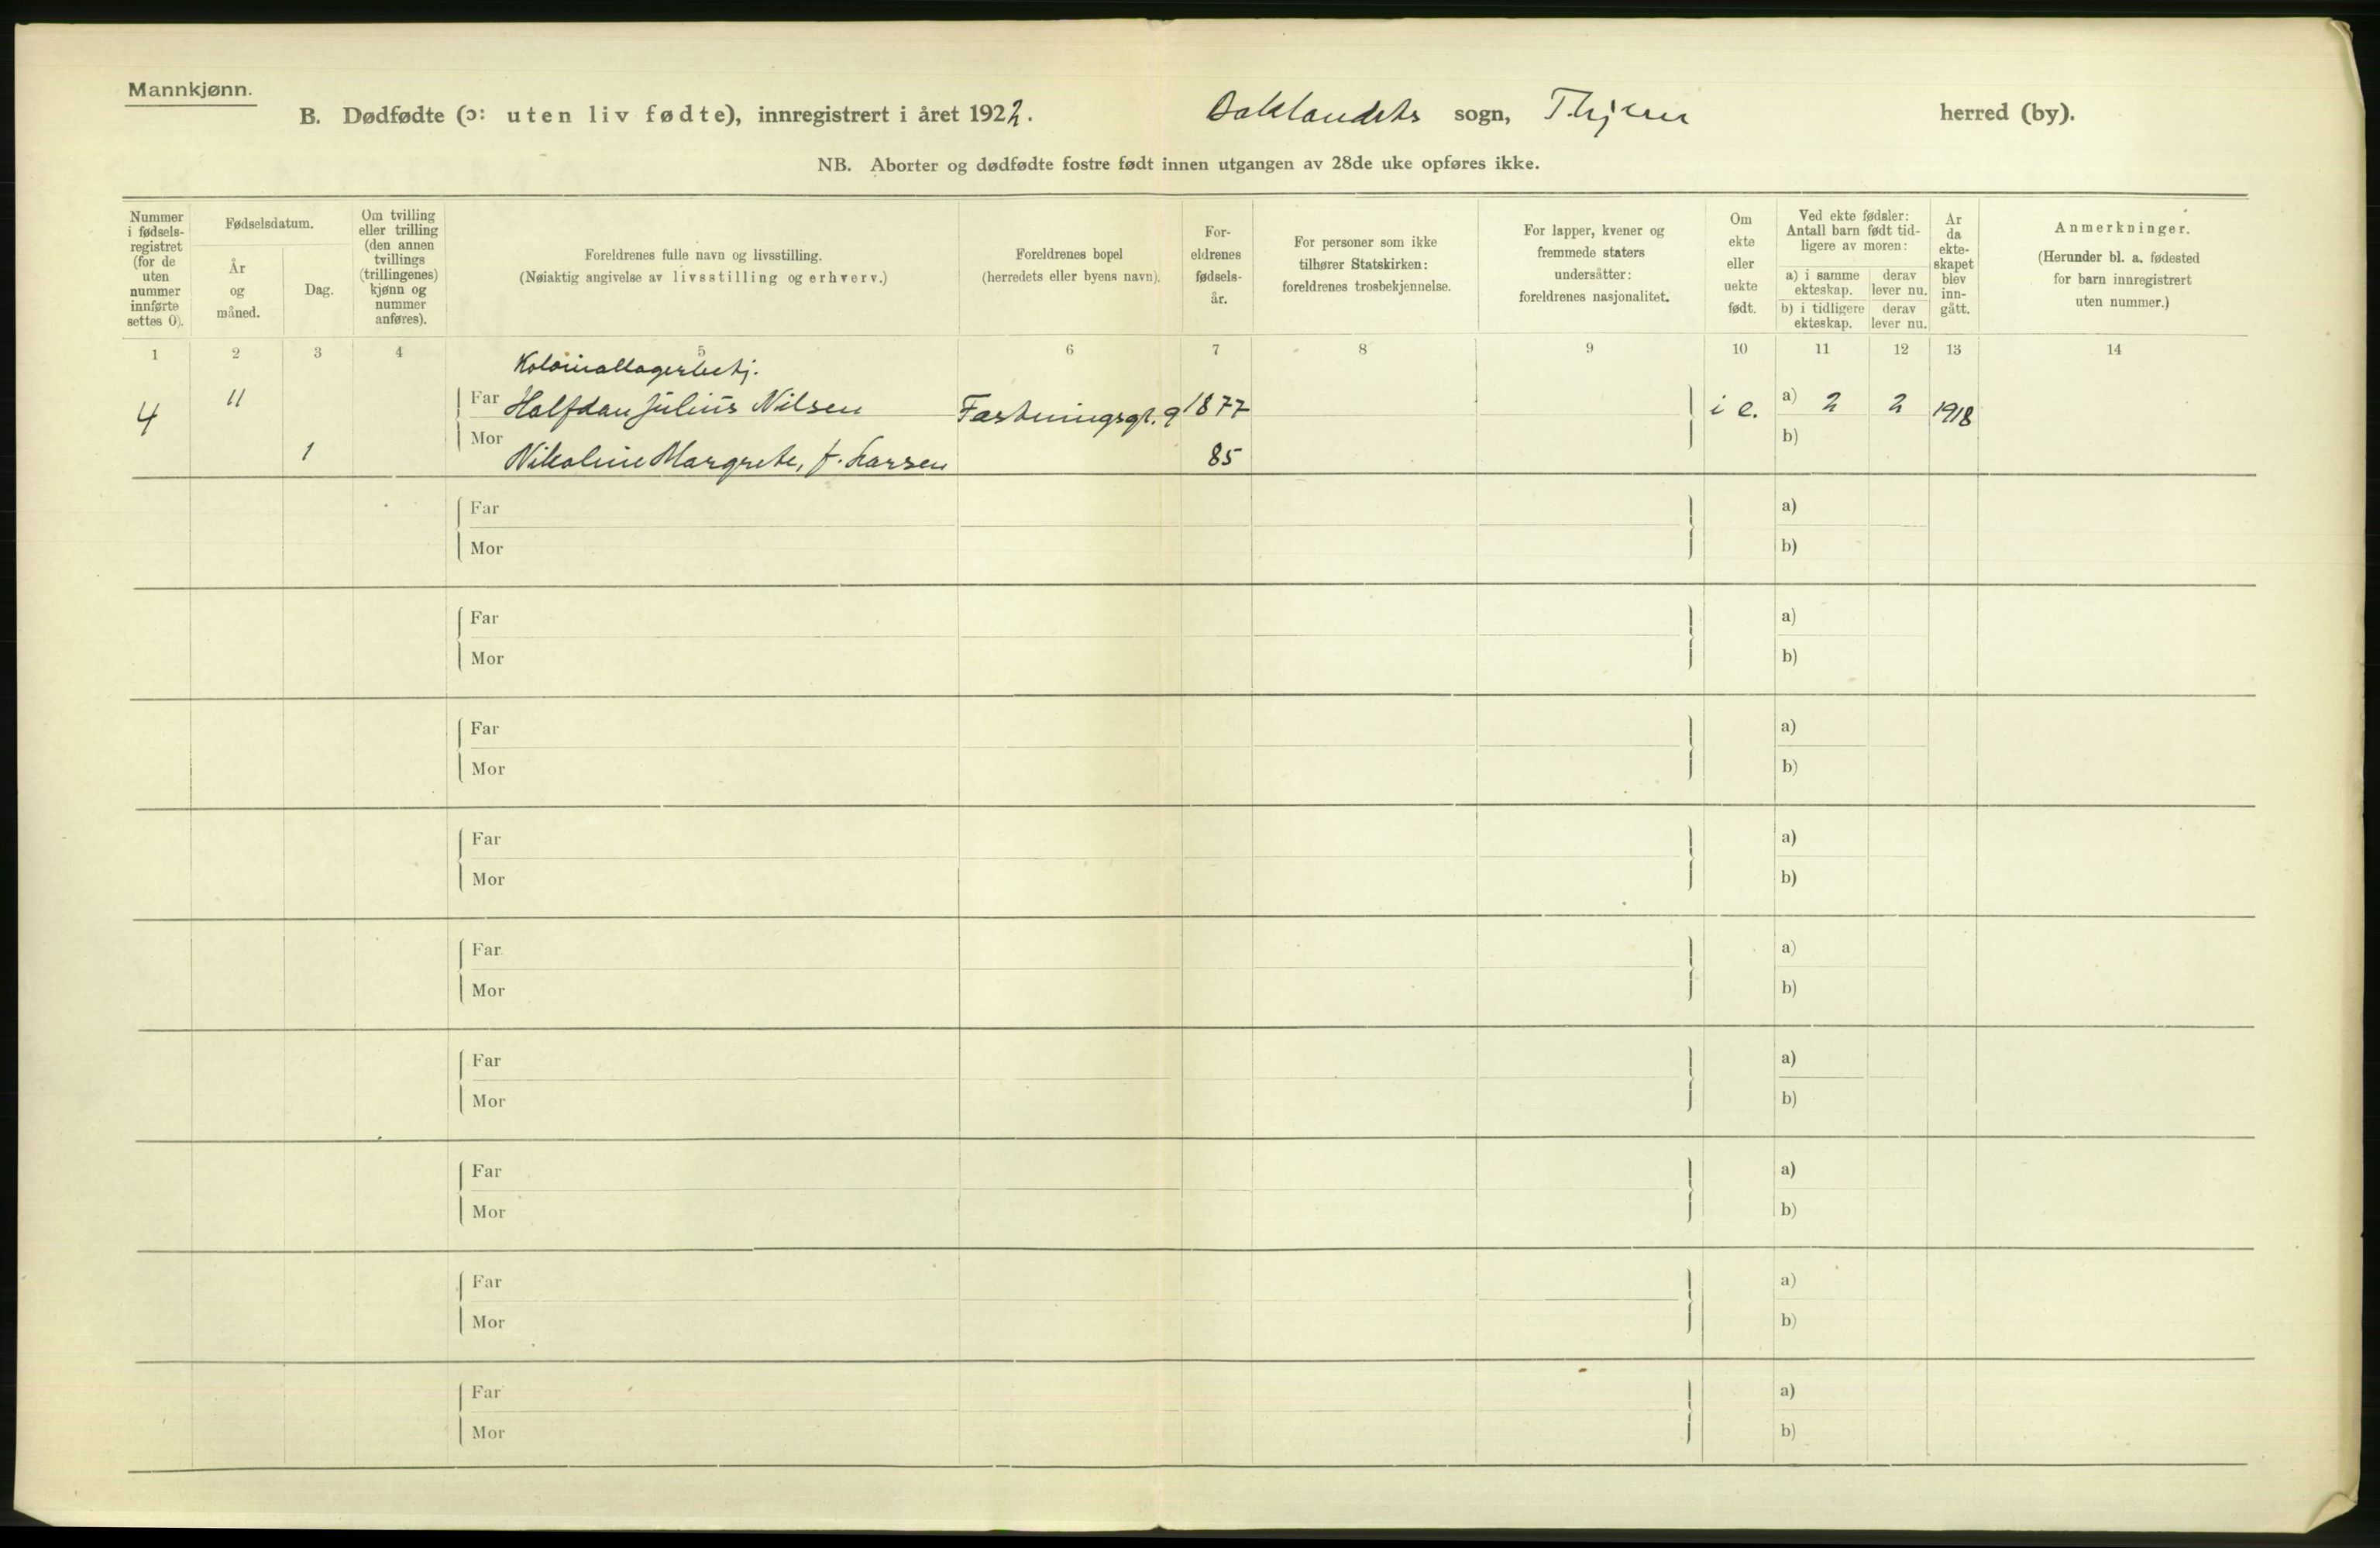 Mannkjønn.
B. Dødfødte (ɔ: uten liv fødte), innregistrert i året 1922. Baklandets sogn, Thjem herred (by).
NB. Aborter og dødfødte fostre født innen utgangen av 28de uke opføres ikke.
Nummer i fødsels-registret (for de uten nummer innførte settes 0).
Fødselsdatum.
År og måned.
Dag.
Om tvilling eller trilling (den annen tvillings (trillingenes) kjønn og nummer anføres).
Foreldrenes fulle navn og livsstilling.
(Nøiaktig angivelse av livsstilling og erhverv.)
Foreldrenes bopel
(herredets eller byens navn).
For-eldrenes fødsels-år.
For personer som ikke tilhører Statskirken: foreldrenes trosbekjennelse.
For lapper, kvener og fremmede staters undersåtter: foreldrenes nasjonalitet.
Om ekte eller uekte født.
Ved ekte fødsler: Antall barn født tid-ligere av moren:
a) i samme ekteskap.
derav lever nu.
b) i tidligere ekteskap.
derav lever nu.
År da ekte-skapet blev inn-gått.
Anmerkninger.
(Herunder bl. a. fødested for barn innregistrert uten nummer.)
1 2 3 4 5 6 7 8 9 10 11 12 13 14
Koloniallagerbetj.
4 11 Far Halfdan Julius Nilsen Fæstningsgt. 9 1877 i e. a) 2 2 1918
1 Mor Nikoline Margrete, f. Larsen 85 b)
Far a)
Mor b)
Far a)
Mor b)
Far a)
Mor b)
Far a)
Mor b)
Far a)
Mor b)
Far a)
Mor b)
Far a)
Mor b)
Far a)
Mor b)
Far a)
Mor b)